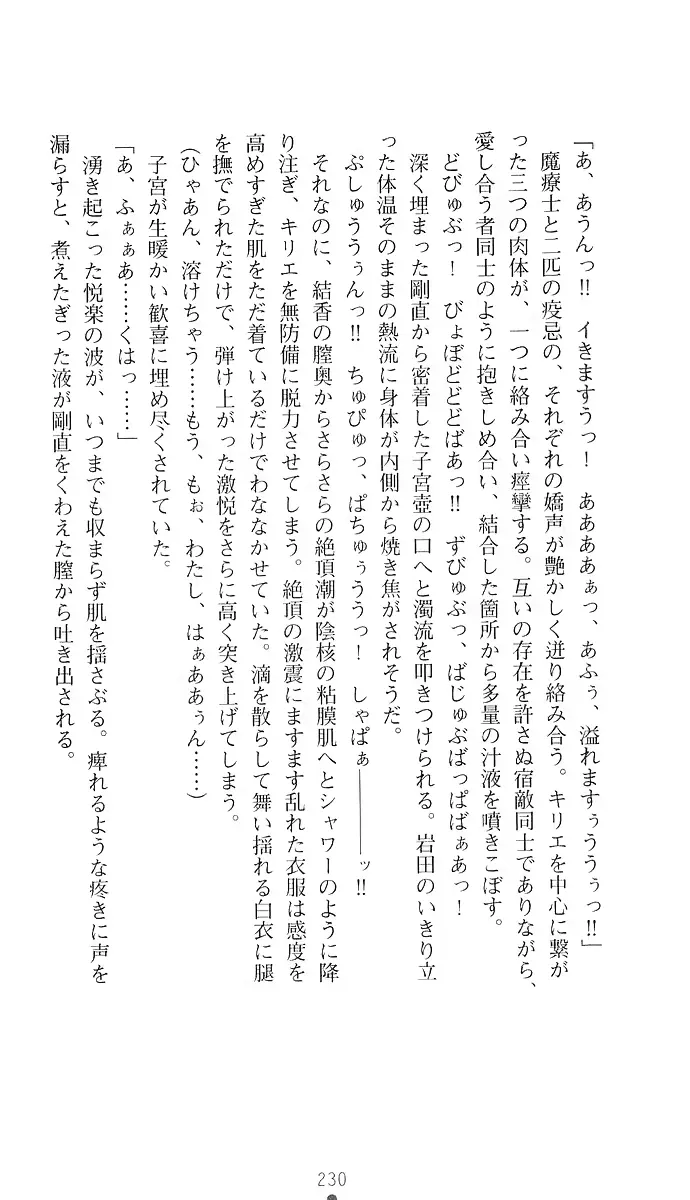 「あ、あうんっ!! イきますうっ! ああああぁっ、あふぅ、溢れますぅううぅっ!!」
　魔療士と二匹の疫忌の、それぞれの嬌声が艶かしく迸り絡み合う。キリエを中心に繋が
った三つの肉体が、一つに絡み合い痙攣する。互いの存在を許さぬ宿敵同士でありながら、
愛し合う者同士のように抱きしめ合い、結合した箇所から多量の汁液を噴きこぼす。
　どびゅぶっ! びょぼどどどばあっ!! ずびゅぶっ、ばじゅぶばっぱばぁあっ!
　深く埋まった剛直から密着した子宮壺の口へと濁流を叩きつけられる。岩田のいきり立
った体温そのままの熱流に身体が内側から焼き焦がされそうだ。
　ぷしゅううぅんっ!! ちゅぴゅっ、ぱちゅぅううっ! しゃぱぁ――――ッ!!
　それなのに、結香の膣奥からさらさらの絶頂潮が陰核の粘膜肌へとシャワーのように降
り注ぎ、キリエを無防備に脱力させてしまう。絶頂の激震にますます乱れた衣服は感度を
高めすぎた肌をただ着ているだけでわななかせていた。滴を散らして舞い揺れる白衣に腿
を撫でられただけで、弾け上がった激悦をさらに高く突き上げてしまう。
（ひゃあん、溶けちゃう……もう、もぉ、わたし、はぁああぅん……）
　子宮が生暖かい歓喜に埋め尽くされていた。
「あ、ふぁぁあ……くはっ……」
　湧き起こった悦楽の波が、いつまでも収まらず肌を揺さぶる。痺れるような疼きに声を
漏らすと、煮えたぎった液が剛直をくわえた膣から吐き出される。
230